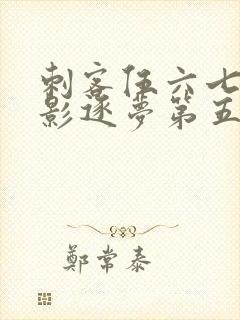 刺客伍六七
影逐梦第五
鄭常泰